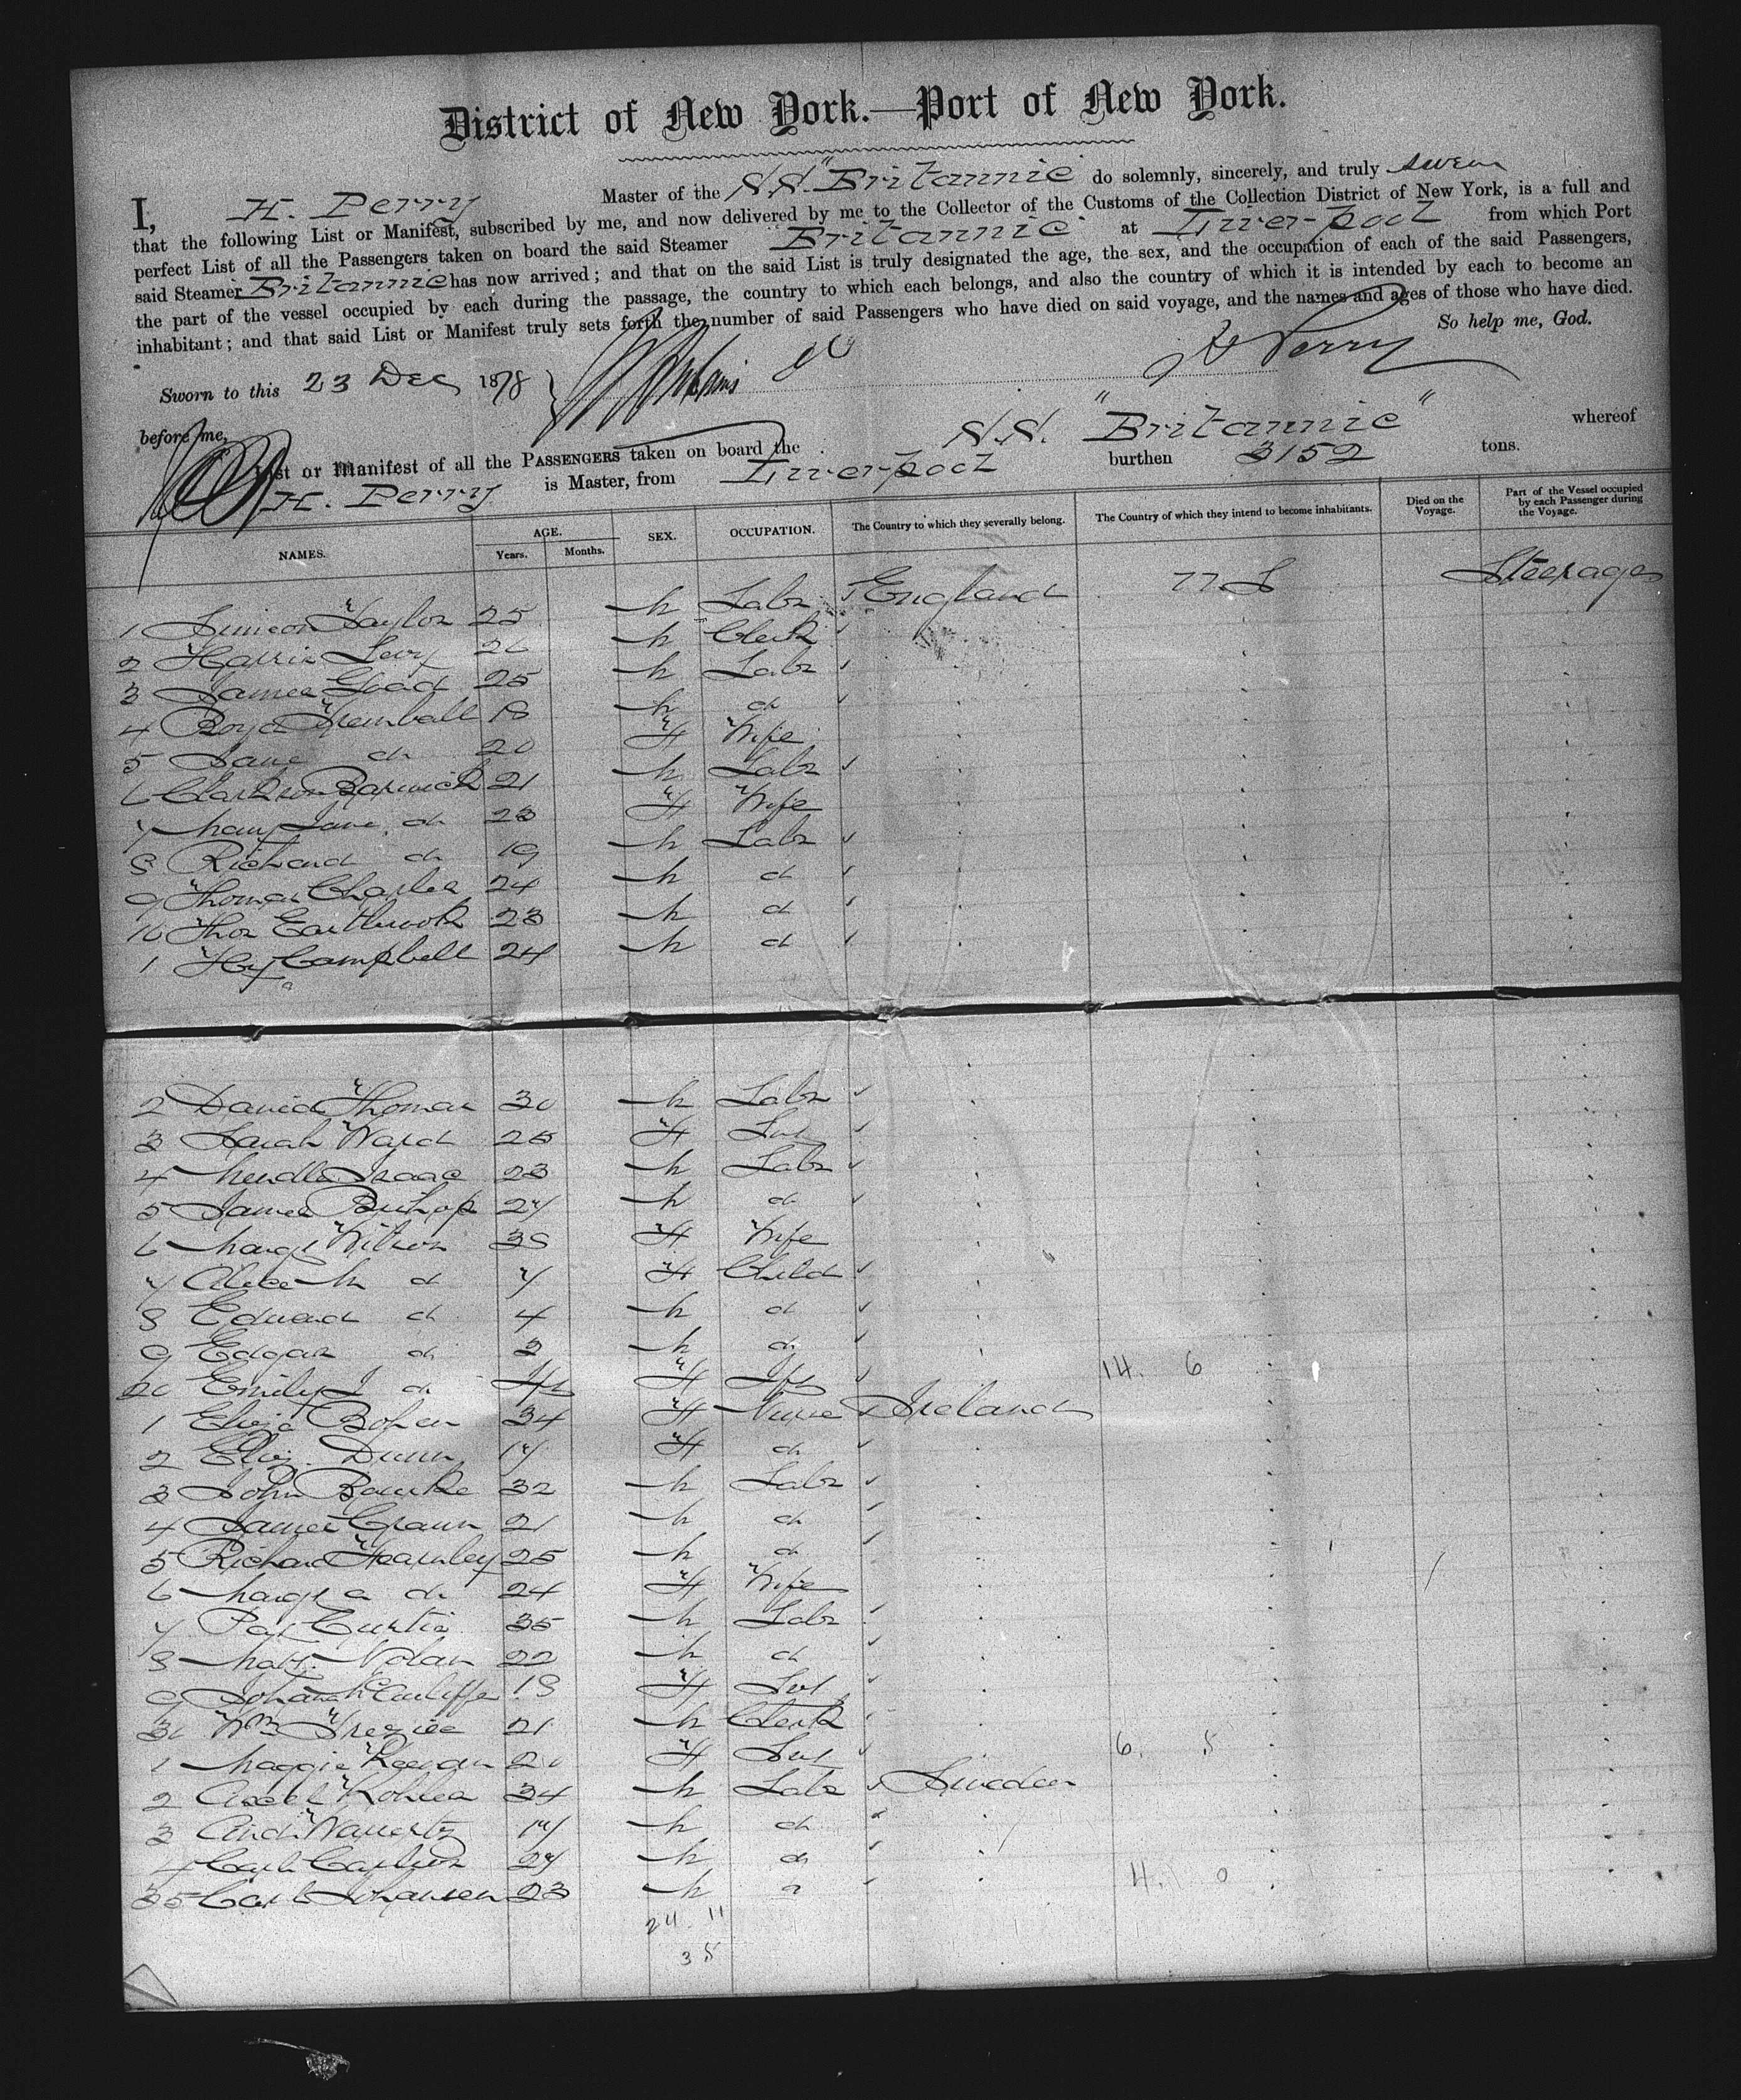 District of New York.—Port of New York.
I, H. Perry Master of the S.S. "Britannic" do solemnly, sincerely, and truly swear
that the following List or Manifest, subscribed by me, and now delivered by me to the Collector of the Customs of the Collection District of New York, is a full and
perfect List of all the Passengers taken on board the said Steamer "Britannic" at Liverpool from which Port
said Steamer Britannic has now arrived; and that on the said List is truly designated the age, the sex, and the occupation of each of the said Passengers,
the part of the vessel occupied by each during the passage, the country to which each belongs, and also the country of which it is intended by each to become an
inhabitant; and that said List or Manifest truly sets forth the number of said Passengers who have died on said voyage, and the names and ages of those who have died.
So help me, God.
Sworn to this 23 Dec 1878 H Perry
before me,
List or Manifest of all the PASSENGERS taken on board the S.S. "Britannic" whereof
H. Perry is Master, from Liverpool burthen 3152 tons.
NAMES. AGE. Years. Months. SEX. OCCUPATION. The Country to which they severally belong. The Country of which they intend to become inhabitants. Died on the Voyage. Part of the Vessel occupied by each Passenger during the Voyage.
1 Simeon Taylor 25 M Labr England U S Steerage
2 Harris Levy 26 M Clerk
3 James Goad 25 M Labr
4 Boyd Tremball 18 M do
5 Jane do 20 F Wife
6 Clarkson Barwick 21 M Labr
7 Mary Jane do 23 F Wife
8 Richard do 19 M Labr
9 Thomas Charles 24 M do
10 Thos 23 M do
1 Hy Campbell 24 M do
2 David Thomas 30 M Labr
3 Sarah Ward 25 F
4 Isaac 23 M Labr
5 James Bishop 27 M do
6 Margt Wilson 38 F Wife
7 Alice M do 7 F Child
8 Edward do 4 M do
9 Edgar do 2 M do
20 Emily J do F 14. 6
1 Eliza 34 F Nurse Ireland
2 Eliz. Dunn 17 F do
3 John Bourke 32 M Labr
4 James 21 M do
5 Richard Fearnley 25 M do
6 Margt a do 24 F Wife
7 Pat Curtis 35 M Labr
8 Nolan 22 M do
9 18 F
30 Wm 21 M Clerk
1 Maggie Keegan 20 F 6. 5
2 Axel Kohler 34 M Labr Sweden
3 17 M do
4 Carl 27 M do 4. 0
35 Carl Johansen 23 M
24. 11
35